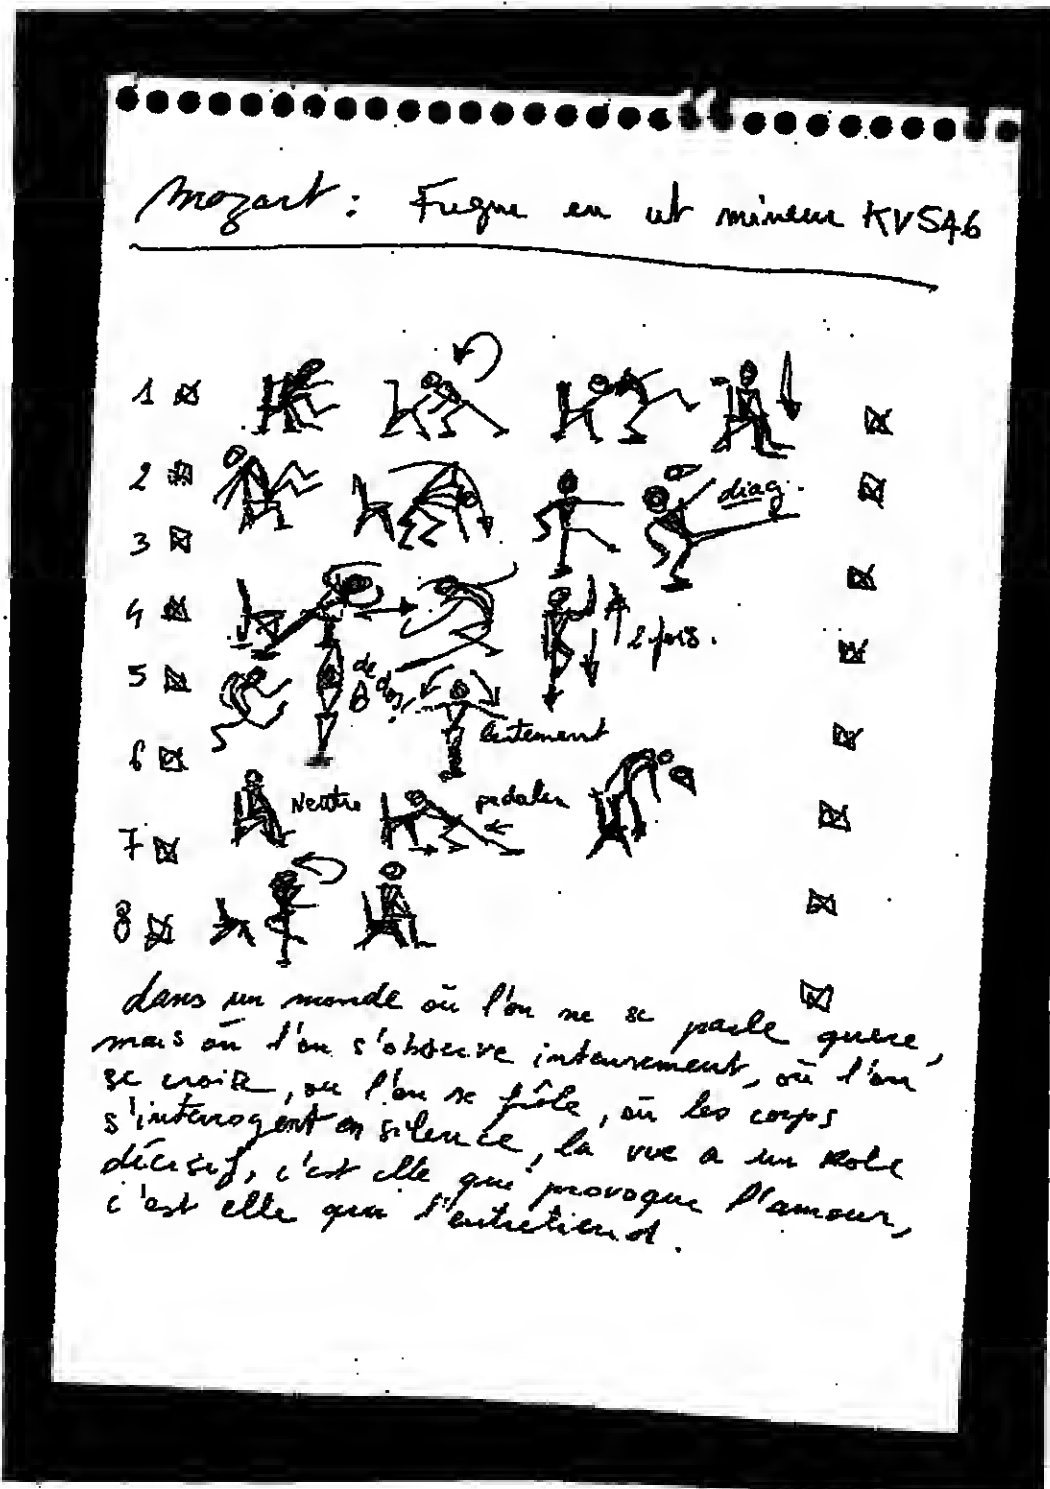 Mozart : Fugue en ut mineur KV546
1
2
diag.
3
4
2 fois.
5
de dos!
lentement
6
Neutre
pedaler
7
8
dans un monde où l'on ne se parle guère,
mais où l'on s'observe intensement, où l'on
se croise, ou l'on se frôle, où les corps
s'interrogent en silence, la vue a un role
décisif, c'est elle qui provoque l'amour,
c'est elle qui l'entretient.